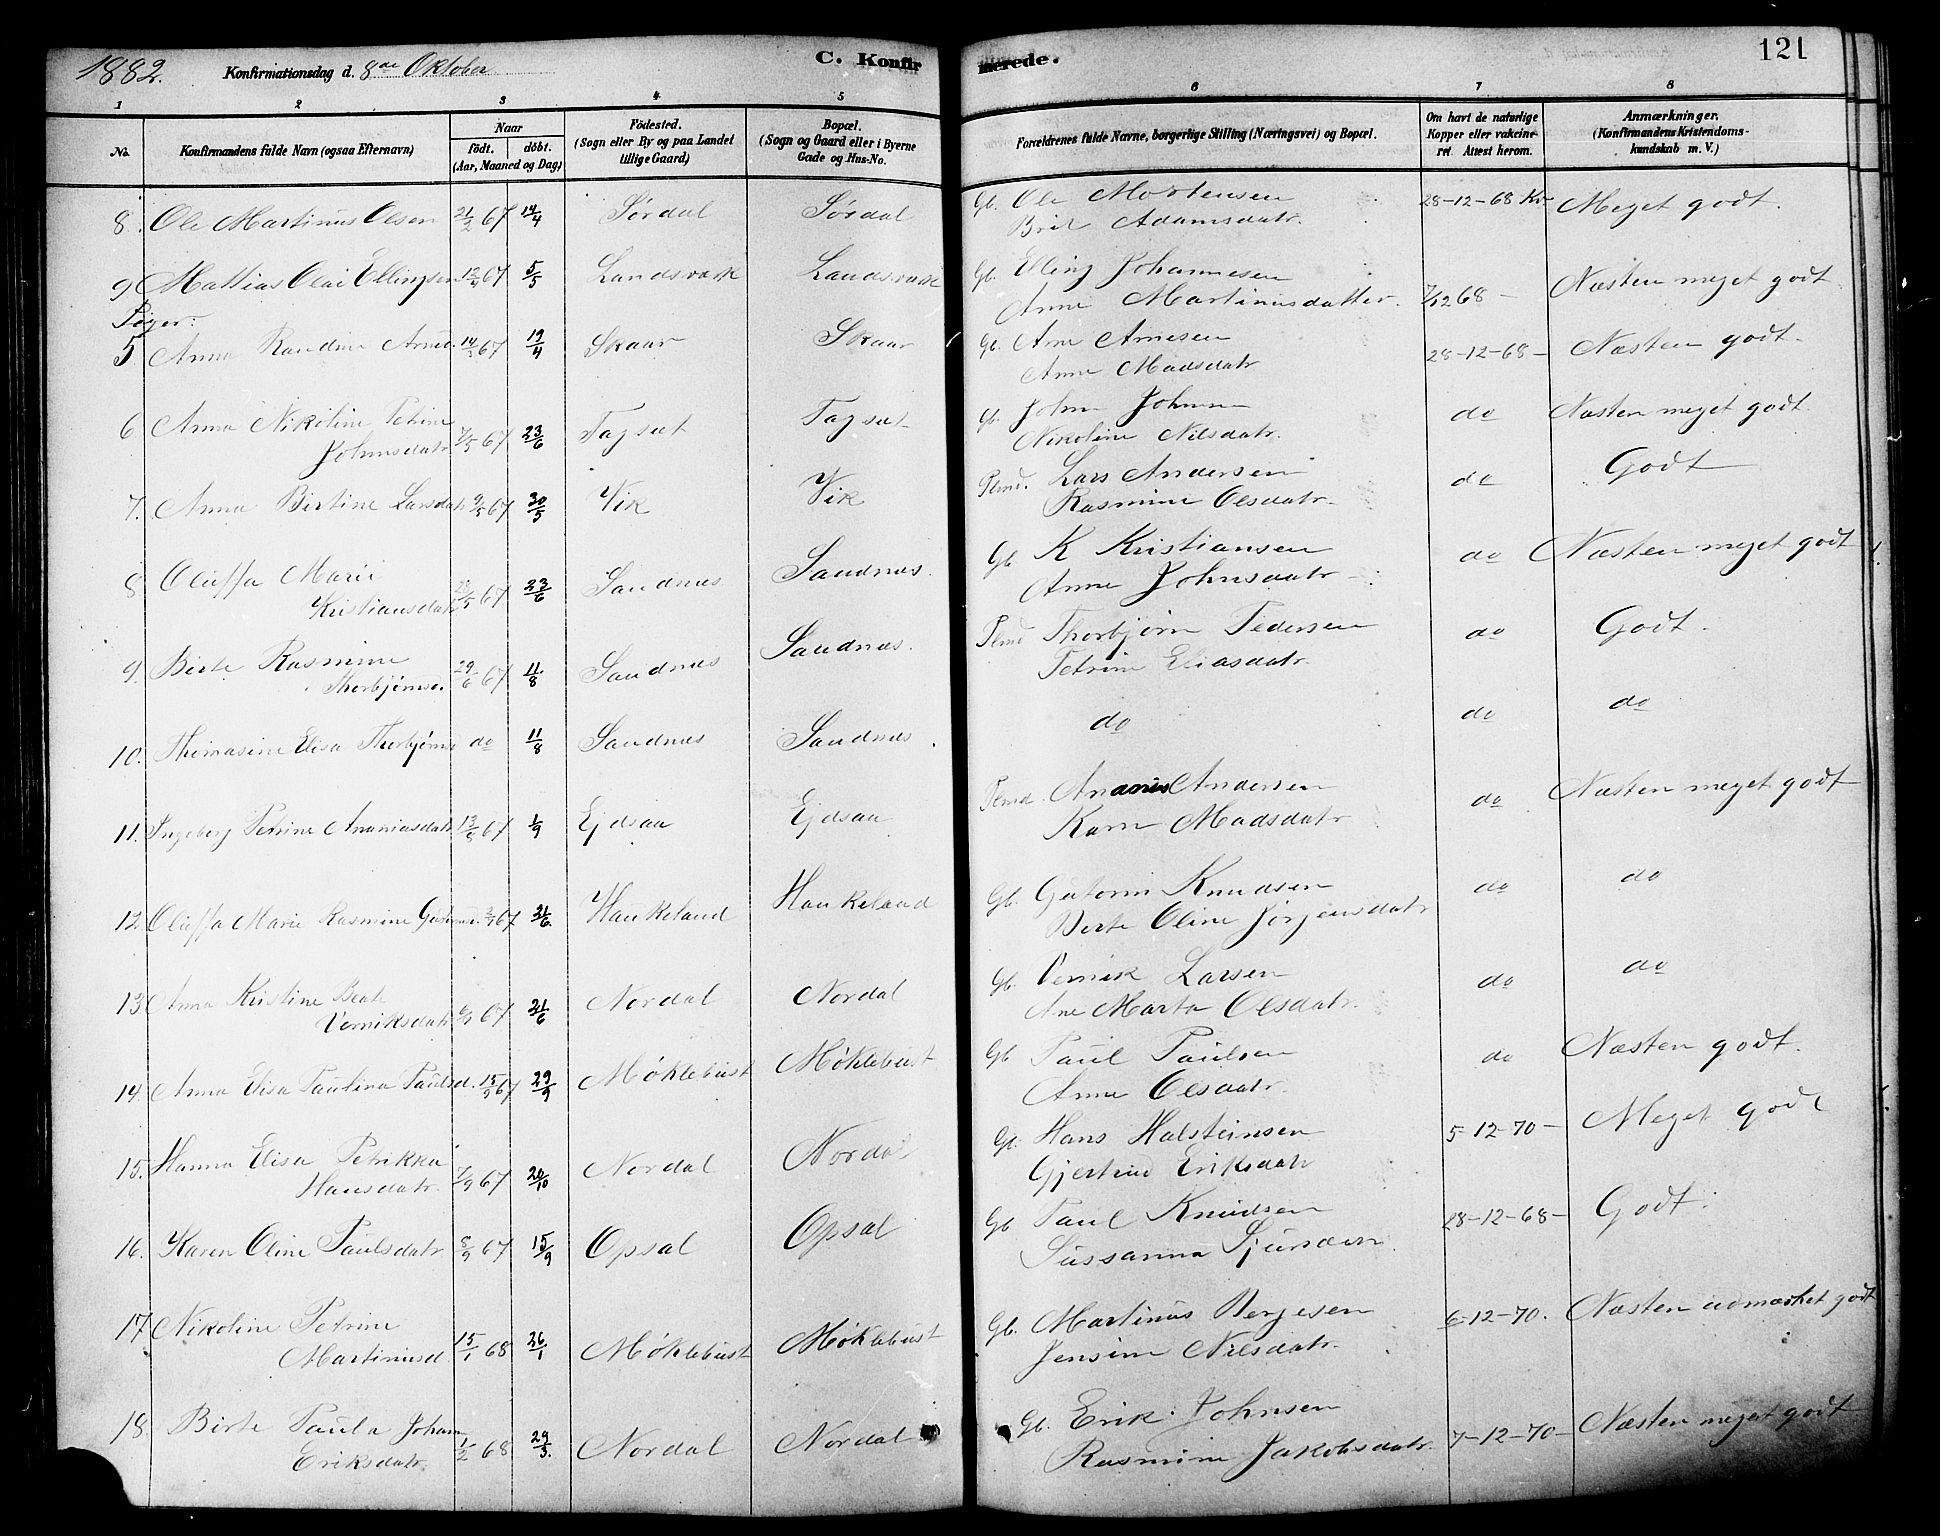 1882. Konfirmationsdag d. 8de Oktober C. Konfirmerede. 121
1 2 3 4 5 6 7 8
No. Konfirmandens fulde Navn (ogsaa Efternavn) Naar födt. döbt. (Aar, Maaned og Dag) Födested. (Sogn eller By og paa Landet tillige Gaard) Bopæl. (Sogn og Gaard eller i Byerne Gade og Hus-No. Forældrenes fulde Navne, borgerlige Stilling (Næringsvei) og Bopæl. Om havt de naturlige Kopper eller vakcineret. Attest herom. Anmærkninger. (Konfirmandens Kristendomskundskab m. V.)
8. Ole Martinus Olsen 21/2 67 14/4 Sørdal Sørdal Gb. Ole Mortensen 28-12-68 Meget godt.
Brit Adamsdatr.
9 Mattias Olai Ellingsen 67 5/5 Landsværk Landsværk Gb. Elling Johannesen Næsten meget godt.
Anne Martinusdatter. 7/12 68 -
Piger:
5 Anna Randine Arnd. 14/3 67 19/4 Skaar Skaar Gb. Arne Arnesen 28-12-68- Næsten godt.
Anne Madsdatr
6 Anna Nikoline Petrine 7/5 67 23/6 Tagsæt Tagsæt Gb. John Johnsen do Næsten meget godt.
Johnsdatr Nikoline Nilsdatr.
7. Anna Birtine Larsdatr 9/5 67 30/5 Vik Vik Plmd. Lars Andersen do Godt
Rasmine Olsdatr.
8 Oluffa Marie 67 23/6 Sandnæs Sandnæs. Gb K Kristiansen do Næsten meget godt
Kristiansdatr Anne Johnsdatr
9. Birte Rasmine 29/6 67 11/8 Sandnæs Sandnæs. Plmd Thorbjørn Pedersen do Godt.
Thorbjørnsd. Petrine Eliasdatr.
10. Thomasine Elisa Thorbjørnsd do 11/8 Sandnæs Sandnæs. do do do
11. Ingeborg Petrine Ananiasdatr 13/8 67 1/9 Ejdsaa Ejdsaa Plmd. Ananias Andersen do Næsten meget godt
Karn Madsdatr
12. Oluffa Marie Rasmine 67 Haukeland Haukeland Gb. Gutorm Knudsen do do
Berte Oline Jørgensdatr
13 Anna Kristine Beate 67 Nordal Nordal Gb. Vemik Larsen do do
Vemiksdatr Ane Marta Olsdatr.
14. Anna Elisa Paulina Paulsd. 15/9 67 29/9 Møklebust Møklebust Gb Paul Paulsen do Næsten godt.
Anne Olsdatr.
15. Hanna Elisa Petrikka 7/9 67 20/10 Nordal Nordal Gb. Hans Halsteinsen 5-12-70- Meget godt
Hansdatr. Gjertrud Eriksdatr
16. Karen Oline Paulsdatr 8/9 67 15/9 Opsal Opsal Gb Paul Knudsen 28-12-68- Godt.
Sussanna
17 Nikoline Petrine 15/1 68 26/1 Møklebust Møklebust Gb. Martinus Børgesen 6-12-70. Næsten udmærket godt
Martinusd. Jensine Nilsdatr.
18. Birte Paula Johan 68 29/3. Nordal Nordal Gb. Erik Johnsen 7-12-70- Næsten meget godt
Eriksdatr. Rasmine Jakobsdatr.